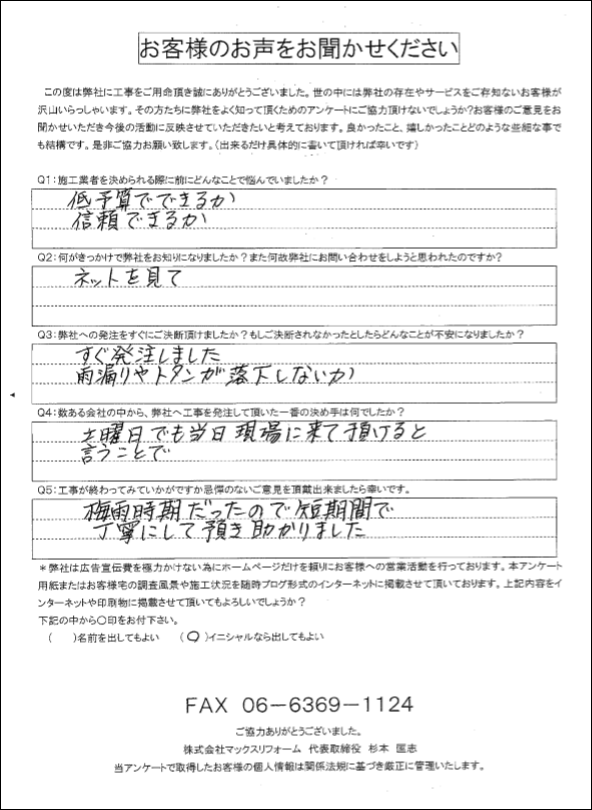 お客様のお声をお聞かせください
この度は弊社に工事をご用命頂き誠にありがとうございました。世の中には弊社の存在やサービスをご存知ないお客様が
沢山いらっしゃいます。その方たちに弊社をよく知って頂くためのアンケートにご協力頂けないでしょうか?お客様のご意見をお
聞かせいただき今後の活動に反映させていただきたいと考えております。良かったこと、嬉しかったことどのような些細な事で
も結構です。是非ご協力お願い致します。(出来るだけ具体的に書いて頂ければ幸いです)
Q1:施工業者を決められる際に前にどんなことで悩んでいましたか?
低予算でできるか
信頼できるか
Q2:何がきっかけで弊社をお知りになりましたか?また何故弊社にお問い合わせをしようと思われたのですか?
ネットを見て
Q3:弊社への発注をすぐにご決断頂けましたか?もしご決断されなかったとしたらどんなことが不安になりましたか?
すぐ発注しました
雨漏りやトタンが落下しないか
Q4:数ある会社の中から、弊社へ工事を発注して頂いた一番の決め手は何でしたか?
土曜日でも当日現場に来て頂けると
言うことで
Q5:工事が終わってみていかがですか忌憚のないご意見を頂戴出来ましたら幸いです。
梅雨時期だったので短期間で
丁寧にして頂き助かりました
*弊社は広告宣伝費を極力かけない為にホームページだけを頼りにお客様への営業活動を行っております。本アンケート
用紙またはお客様宅の調査風景や施工状況を随時ブログ形式のインターネットに掲載させて頂いております。上記内容をイ
ンターネットや印刷物に掲載させて頂いてもよろしいでしょうか?
下記の中から○印をお付下さい。
( )名前を出してもよい (○)イニシャルなら出してもよい
FAX 06-6369-1124
ご協力ありがとうございました。
株式会社マックスリフォーム 代表取締役 杉本 匡志
当アンケートで取得したお客様の個人情報は関係法規に基づき厳正に管理いたします。